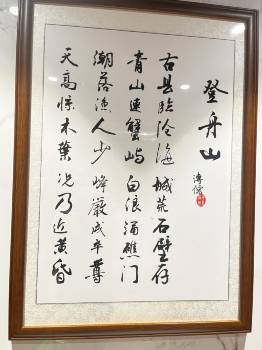 登舟山
溥儒
古县临沧海 城荒石壁存
青山連蟹嶼 白浪涌礁门
潮落渔人少 烽嚴戍卒尊
天高惊木葉 况乃近黄昏